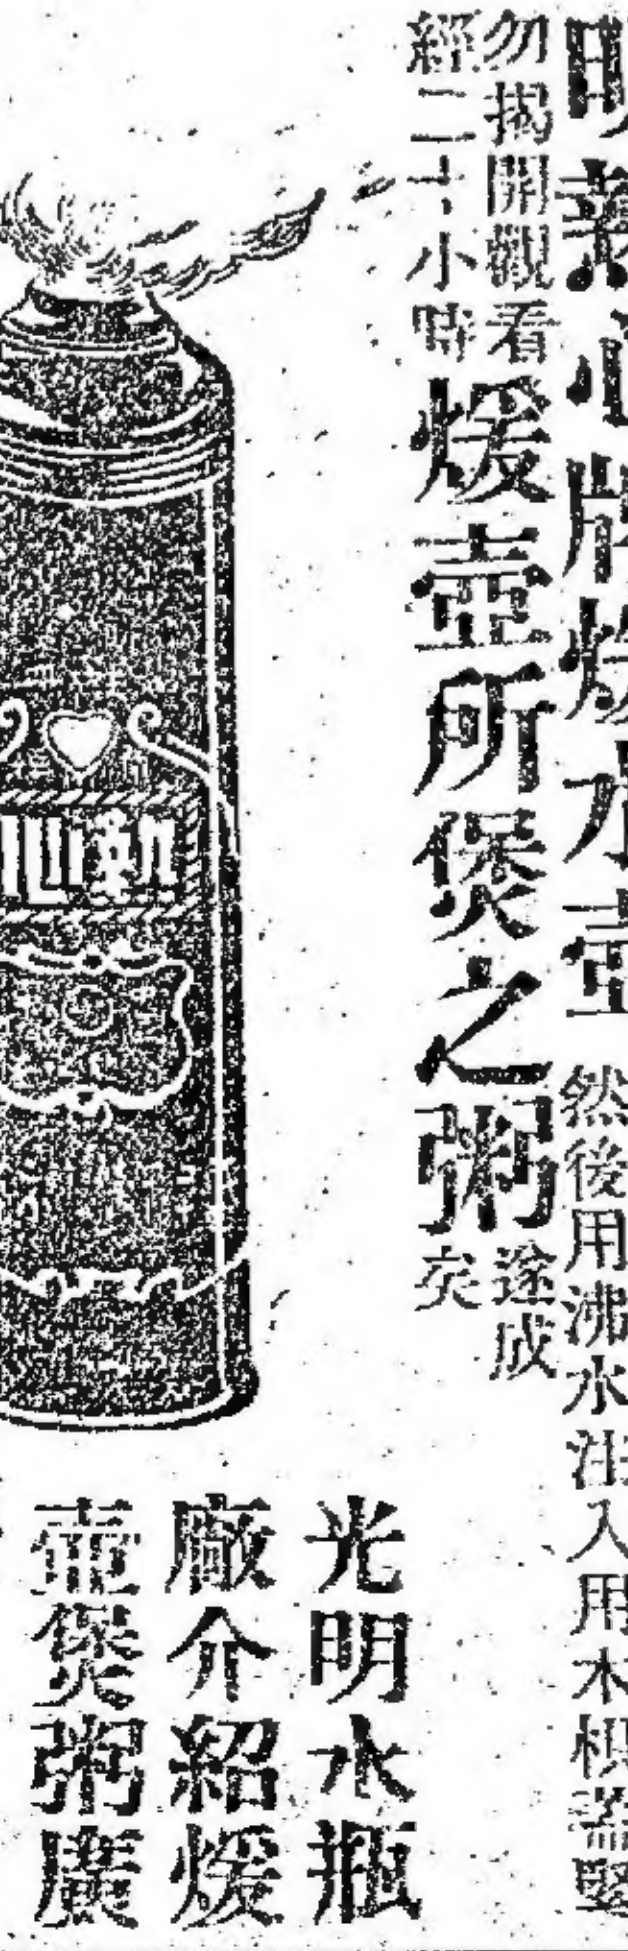 明義心牌煖水壺
然後用沸水注入用木楔蓋堅
勿揭開觀看
經二十小時
煖壺所煲之粥
遂成
矣
心動
光明水瓶
廠介紹煖
壺煲粥廣